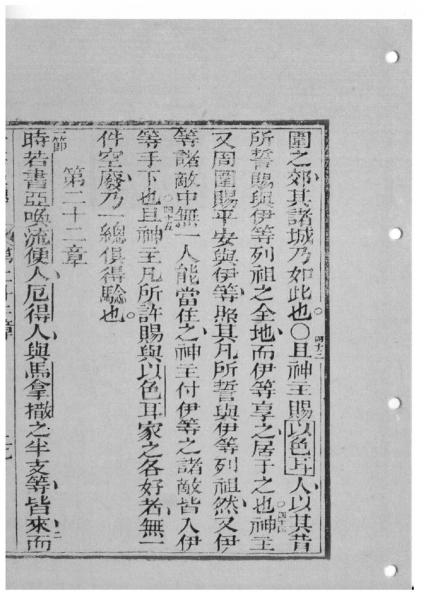 圍之郊其諸城乃如此也。〇且神主賜以色耳人以其昔
所誓賜與伊等列祖之全地而伊等享之居于之也神主
又周圍賜平安與伊等照其凡所誓與伊等列祖然又伊
等諸敵中無一人能當住之神主付伊等之諸敵皆入伊
等手下也且神主凡所許賜與以色耳家之各好者無一
件空廢乃一總俱得驗也。
第二十二章
一節 時若書亞喚流便人厄得人與馬拿撒之半支等皆來而